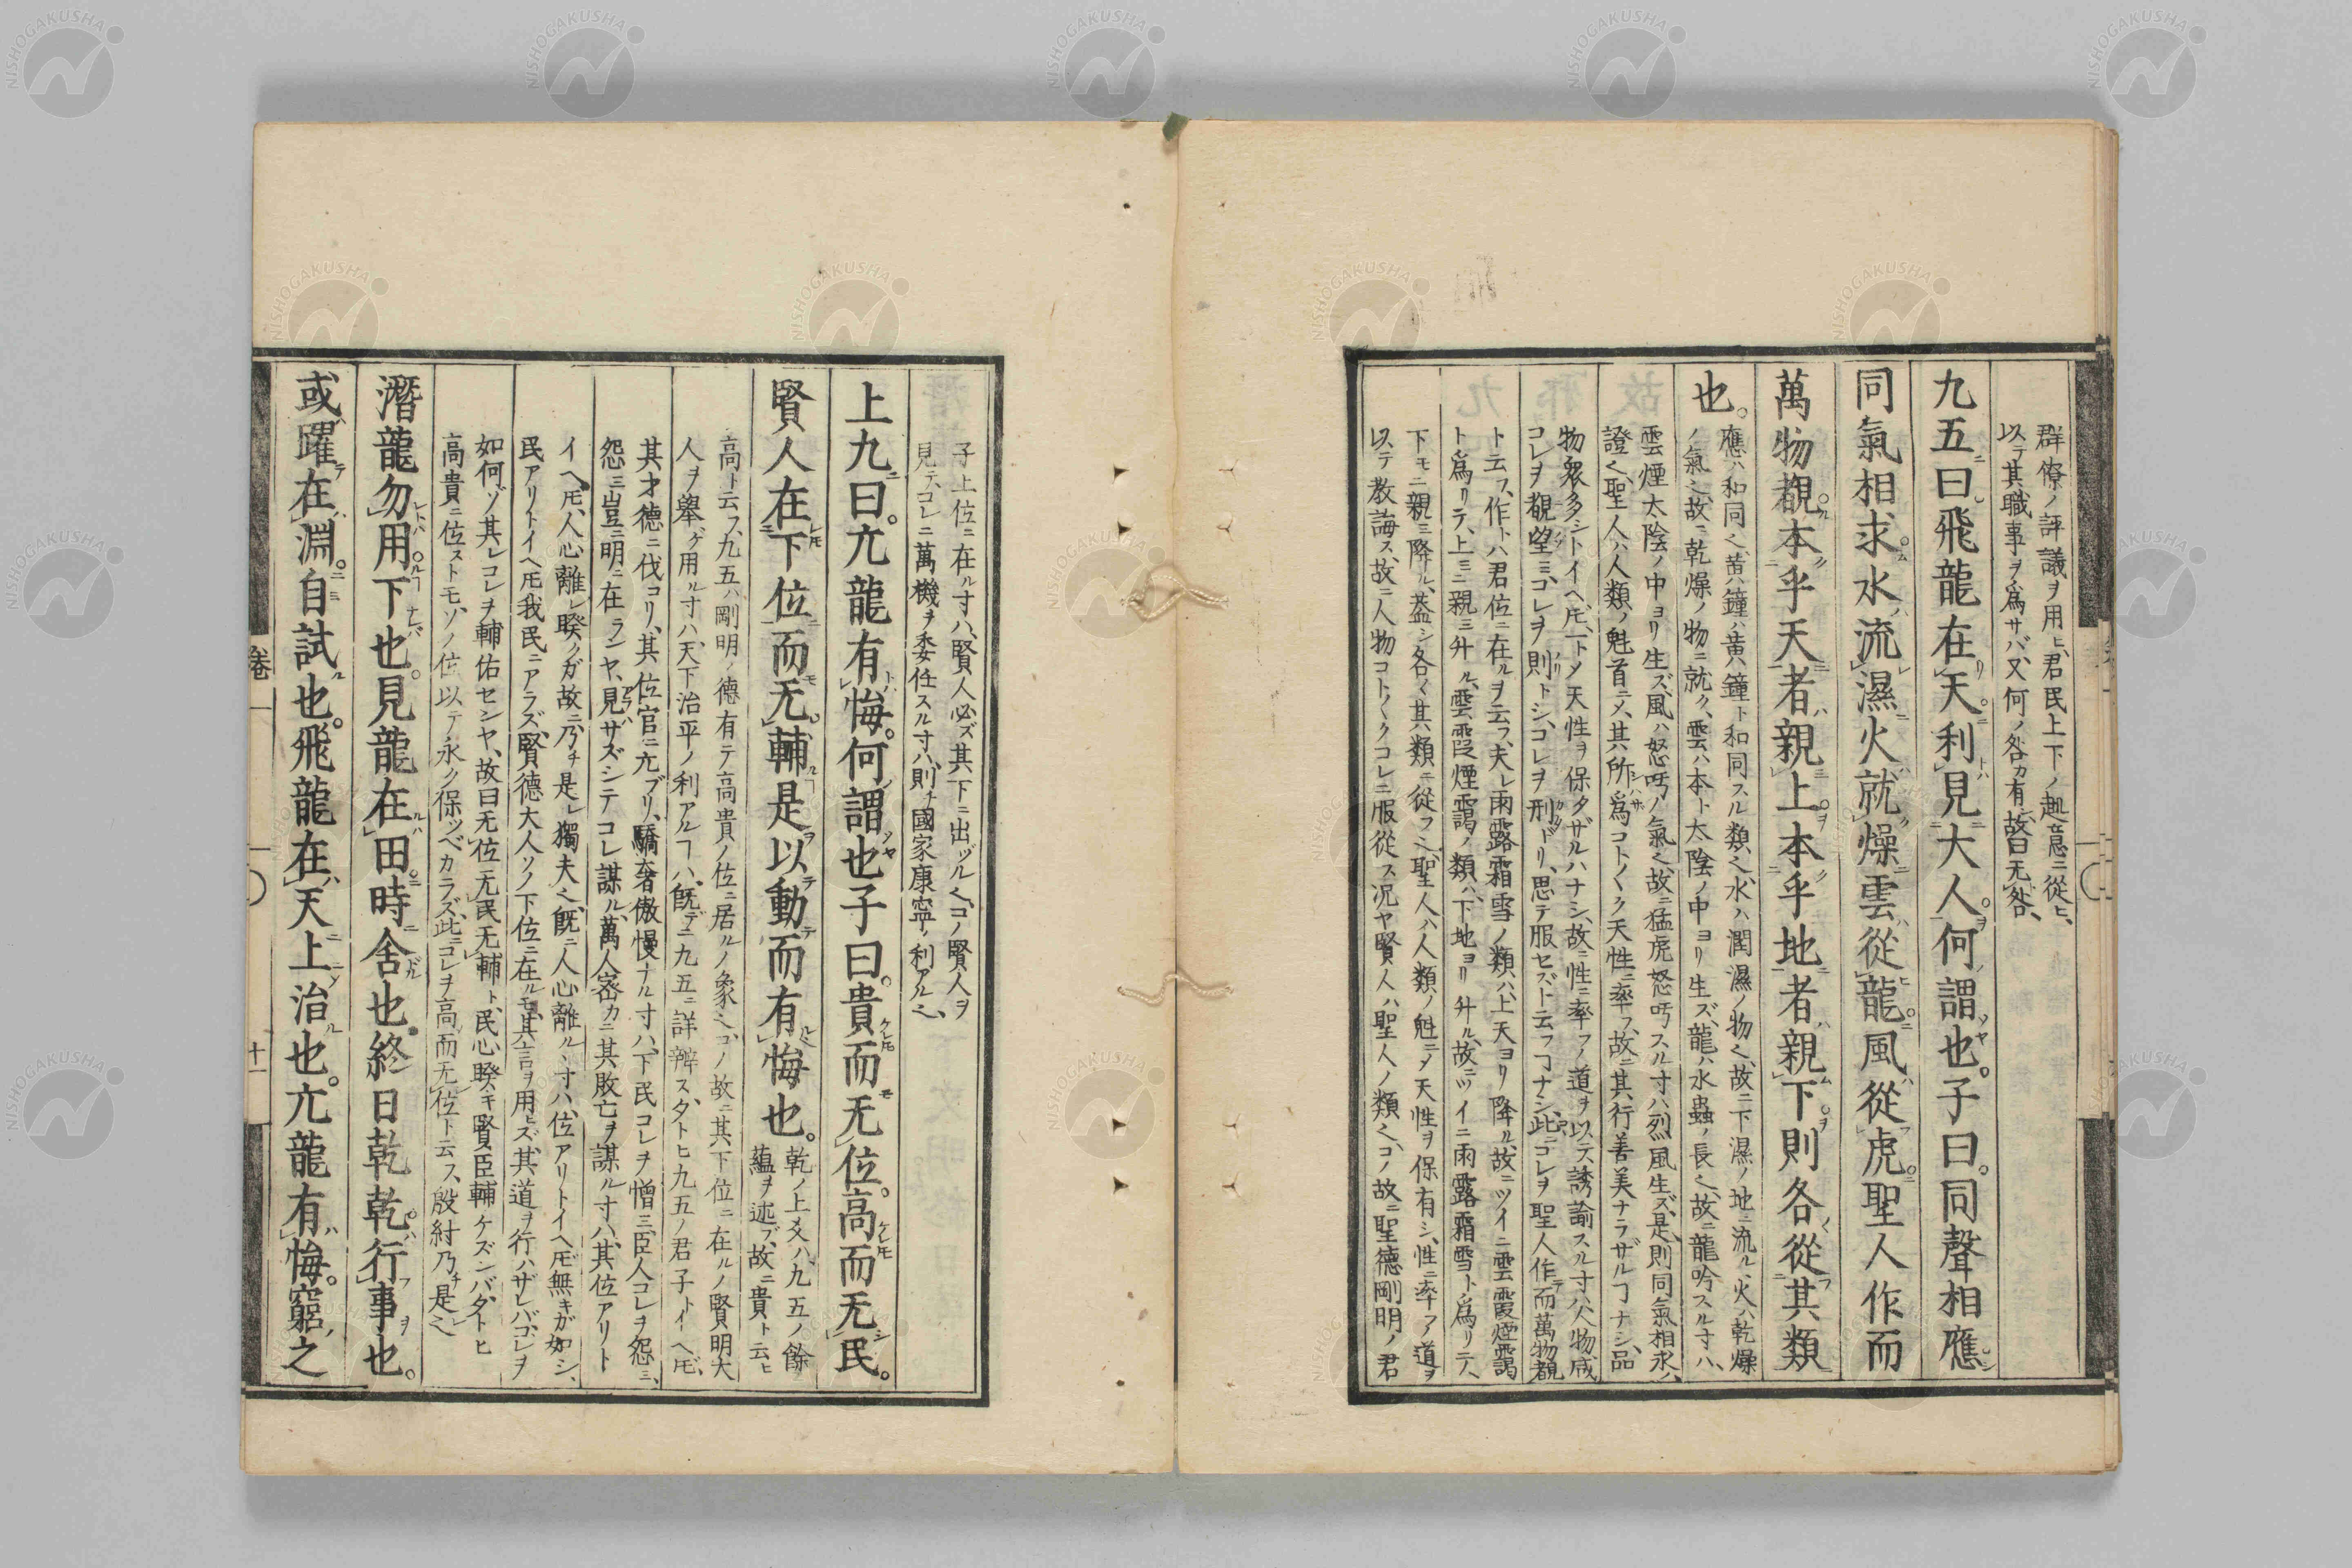 群僚ノ評議ヲ用ヒ、君民上下ノ趣意ニ從ヒ、
以テ其職事ヲ爲サバ、又何ノ咎カ有ン、故曰无咎、
九五曰飛龍在天利見大人何謂也。子曰。同聲相應
同氣相求水流濕火就燥雲從龍風從虎聖人作而
萬物覩本乎天者親上本乎地者親下則各從其類
也。
應ハ和同ヘ、黄鐘ハ黄鐘ト和同スル類ヘ、水ハ潤濕ノ物ヘ、故ニ下濕ノ地ニ流ル、火ハ乾燥
ノ氣ヘ、故ニ乾燥ノ物ニ就ク、雲ハ本ト太陰ノ中ヨリ生ズ、龍ハ水蟲ノ長ヘ、故ニ龍吟スル寸ハ、
雲煙太陰ノ中ヨリ生ズ、風ハ怒呺ノ氣ヘ、故ニ猛虎怒呺スル寸ハ烈風生ズ、是則同氣相求ノ
證ヘ、聖人ハ人類ノ魁首ニメ、其所爲コト〱ク天性ニ率フ、故ニ其行善美ナラザルヿナシ、品
物衆多シトイヘ𪜈、一トメ天性ヲ保タザルハナシ、故ニ性ニ率フノ道ヲ以テ誘諭スル寸ハ、人物咸
コレヲ覩望ミ、コレヲ則トシ、コレヲ刑ドリ、思テ服セズト云フヿナシ、此ニコレヲ聖人作而萬物覩
ト云フ、作トハ君位ニ在ルヲ云フ、夫レ雨露霜雪ノ類ハ、上天ヨリ降ル、故ニツイニ雲霞煙靄
ト爲リテ、上ミニ親ミ升ル、雲霞煙靄ノ類ハ、下地ヨリ升ル、故ニツイニ雨露霜雪ト爲リテ、
下モニ親ミ降ル、蓋シ各〱其類ニ從フヘ、聖人ハ人類ノ魁ニメ天性ヲ保有シ、性ニ率フノ道ヲ
以テ教誨ス、故ニ人物コト〱クコレニ服從ス況ヤ賢人ハ聖人ノ類ヘ、コノ故ニ聖德剛明ノ君
子上位ニ在ル寸ハ、賢人必ズ其下ニ出ヅルヘ、コノ賢人ヲ
見テ、コレニ萬機ヲ委任スル寸ハ、則チ國家康寧ノ利アルヘ、
上九曰。亢龍有悔。何謂也子曰。貴而无位。高而无民。
賢人在下位而无輔是以動而有悔也。
乾ノ上爻ハ、九五ノ餘
蘊ヲ述ブ、故ニ貴ト云ヒ
高ト云フ、九五ハ剛明ノ德有テ高貴ノ位ニ居ルノ象ヘ、コノ故ニ其下位ニ在ルノ賢明大
人ヲ舉ゲ用ル寸ハ、天下治平ノ利アルヿハ、既ニ九五ニ詳辨ス、タトヒ九五ノ君子トイヘ𪜈、
其才德ニ伐コリ、其位官ニ亢ブリ、驕奢傲慢ナル寸ハ、下民コレヲ憎ミ、臣人コレヲ怨ミ、
怨ミ豈ニ明ニ在ランヤ、見サズシテコレ謀ル、萬人密カニ其敗亡ヲ謀ル寸ハ、其位アリト
イヘ𪜈、人心離レ睽クガ故ニ、乃チ是レ獨夫ヘ、既ニ人心離ルヽ寸ハ、位アリトイヘ𪜈無キガ如シ、
民アリトイヘ𪜈、我民ニアラズ、賢德大人ソノ下位ニ在ルモ、其言ヲ用ヒズ、其道ヲ行ハザレバ、コレヲ
如何ゾ其レコレヲ輔佑センヤ、故曰无位无民无輔ト、民心睽キ賢臣輔ケズンバ、タトヒ
高貴ニ位ストモ、ソノ位以テ永ク保ツベカラズ、此ニコレヲ高而无位ト云ス、殷紂乃チ是ヘ
潛龍勿用下也。見龍在田時舍也。終日乾乾行事也。
或躍在淵。自試也。飛龍在天上治也。亢龍有悔。窮之
卷一
十一